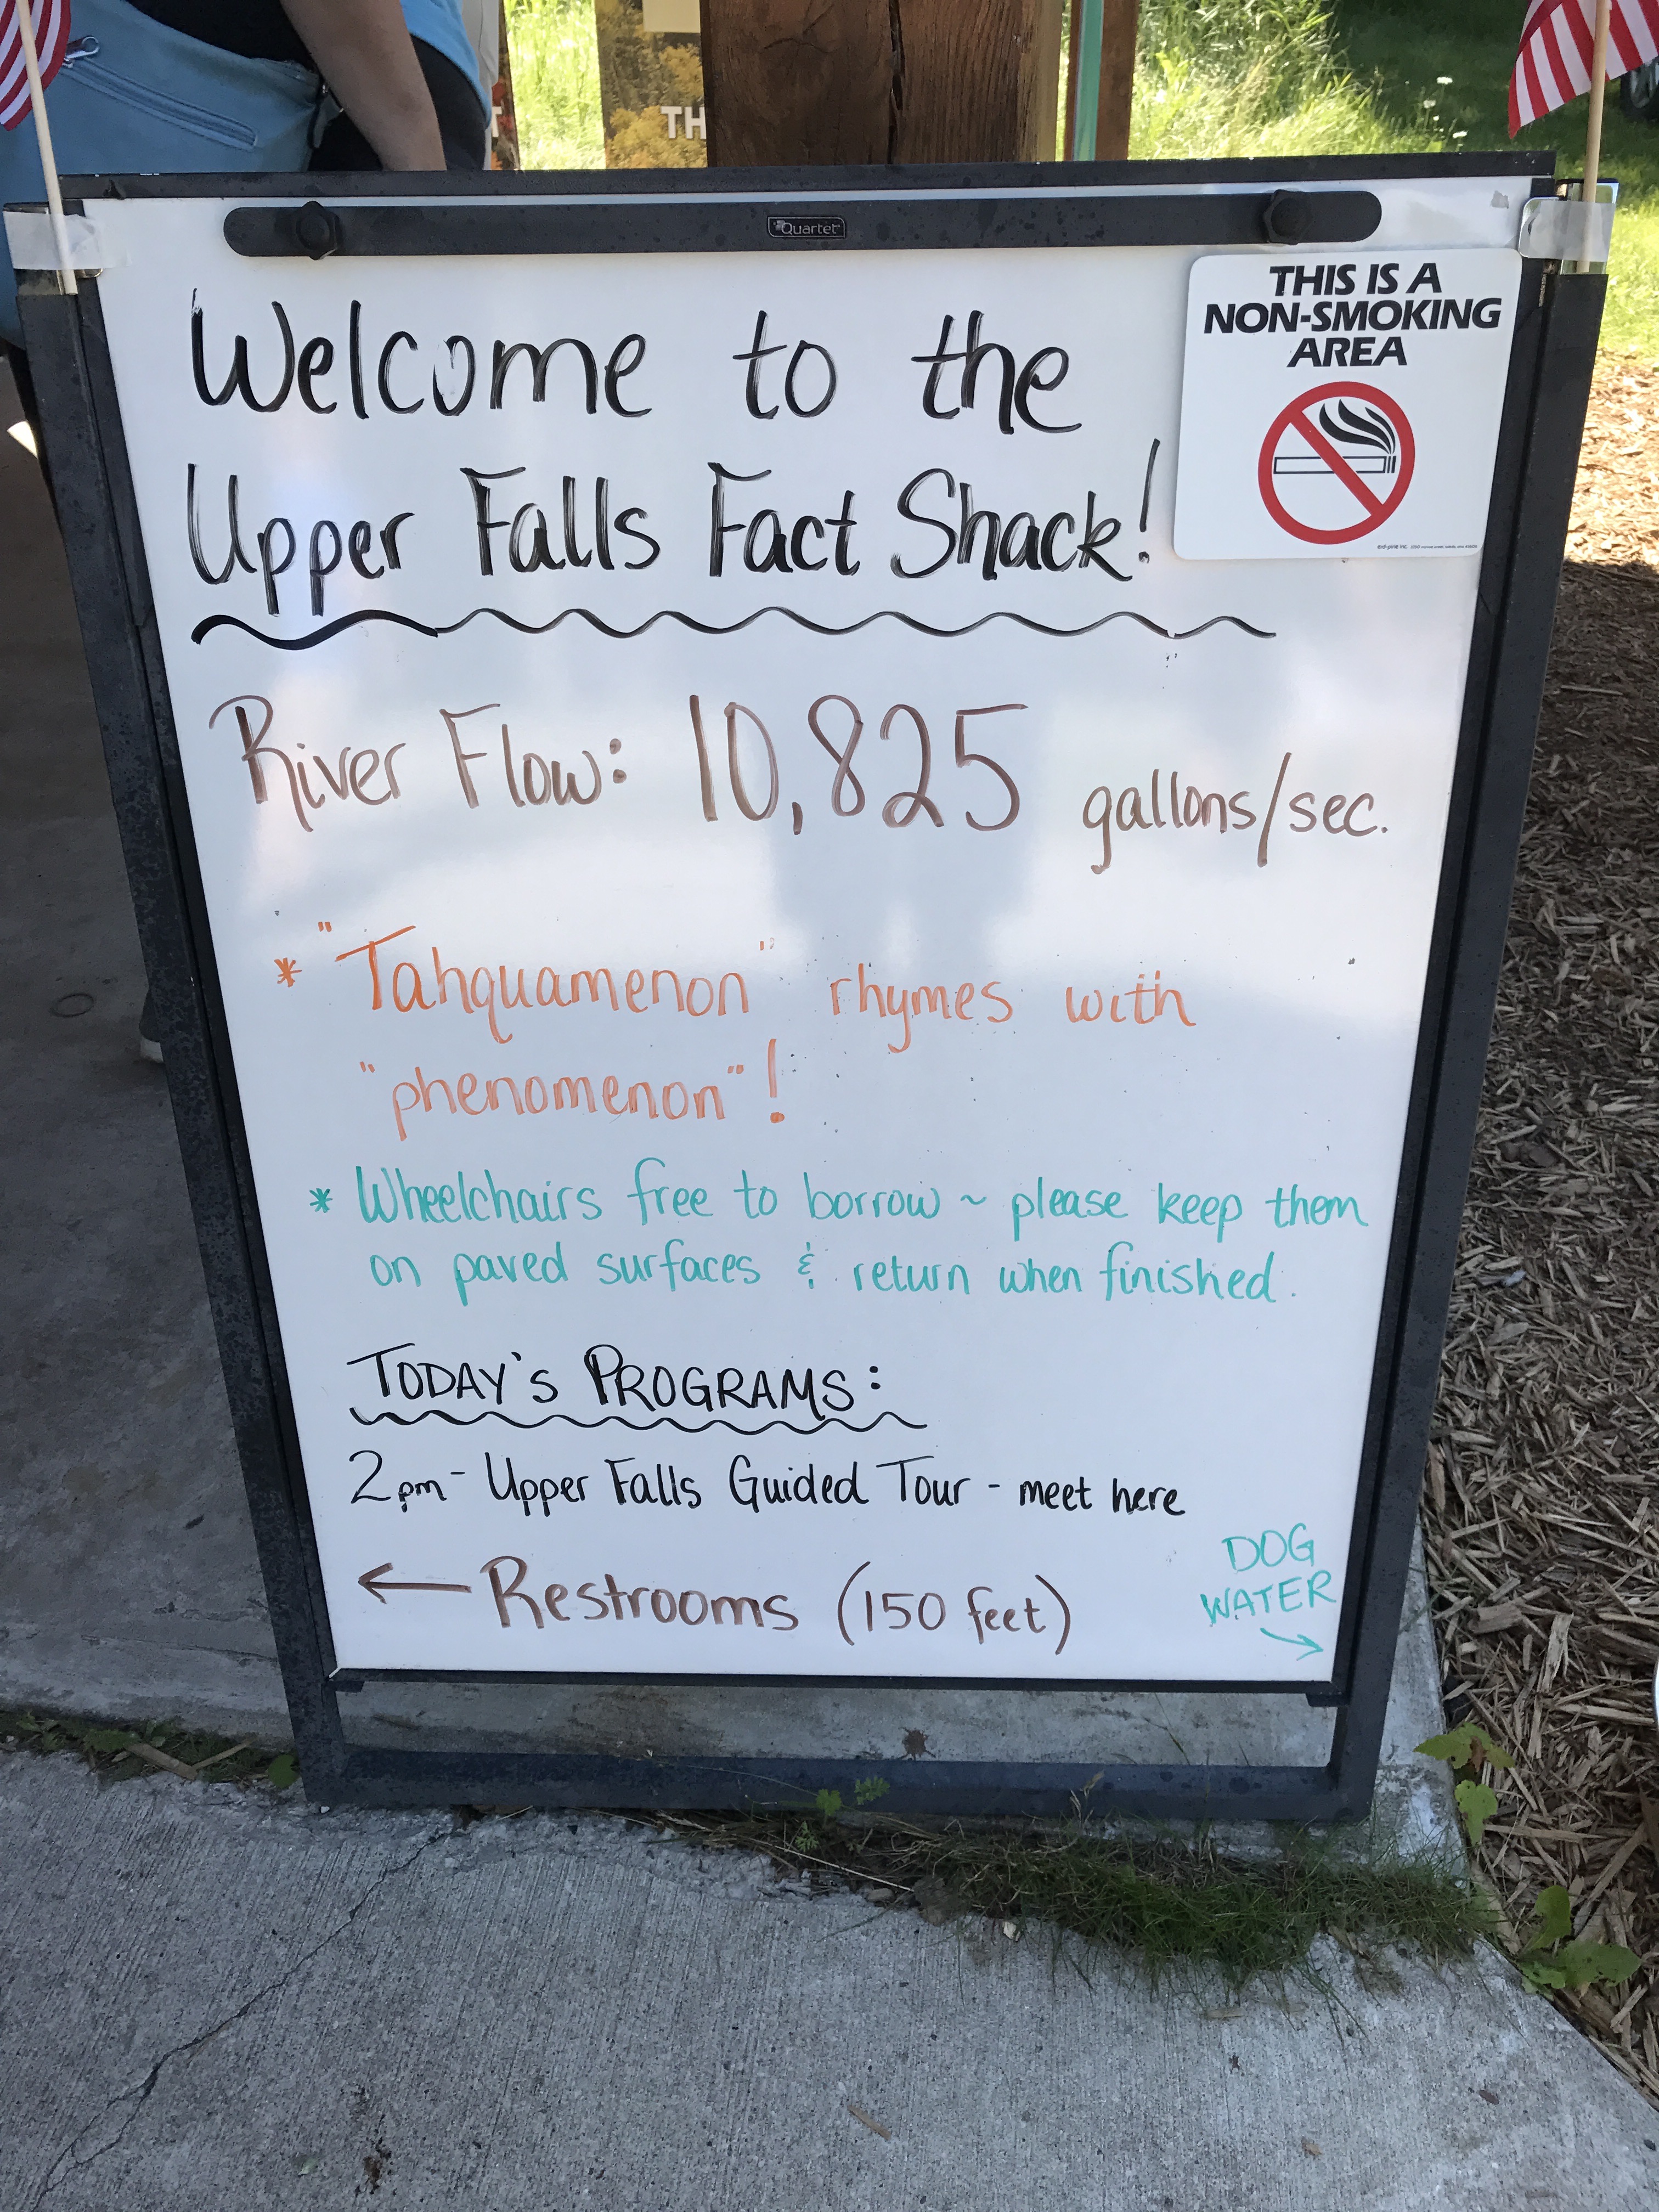 TH
Quartet
THIS IS A
NON-SMOKING
AREA
Welcome to the
Upper Falls Fact Shack!
River Flow: 10,825 gallons/sec.
* "Tahquamenon" rhymes with
"phenomenon"!
* Wheelchairs free to borrow ~ please keep them
on paved surfaces & return when finished.
TODAY'S PROGRAMS:
2pm - Upper Falls Guided Tour - meet here
← Restrooms (150 feet)
DOG
WATER
→